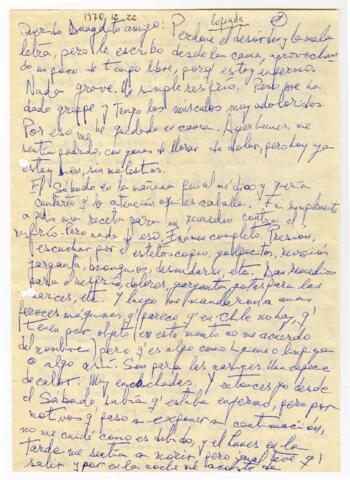 1970, 12-22 copiada 1
Querido amigo: Perdone el desorden y la mala
letra, pero le escribo desde la cama, aprovechando
un poco de tiempo libre, porq' estoy enfermo.
Nada grave. Un simple resfrío. Pero me ha
dado grippe y tengo los músculos muy adoloridos.
Por eso me he quedado en cama. Ayer lunes, me
sentía podrido, con ganas de llorar de dolor, pero hoy ya
estoy bien, sin molestias.
El Sábado en la mañana fui al médico y quería
contarle q' la atención aquí es caballa. Fui simplemente
a pedir una receta para un remedio contra el
resfrío. Pero nada de eso. Exámen completo. Presión,
escuchar por el estetoscopio, golpecitos, revisión
garganta, bronquios, desnudarse, etc. Dan remedios
para el resfrío, dolores, garganta, gotas para las
narices, etc. Y luego me mandaron a unas
feroces máquinas q' parece q' en Chile no hay, q'
tienen por objeto (en este momento no me acuerdo
del nombre) pero q' es algo como higiene o limpieza
o algo así. Son para las narices. Una especie
de calor. Muy enchuladas. Y entonces yo desde
el Sábado sabía q' estaba enfermo, pero por
motivos q' paso a exponer a continuación,
no me cuidé como es debido, y el lunes en la
tarde me sentía a morir, pero igual tuve q'
salir y por en la noche me acosté de